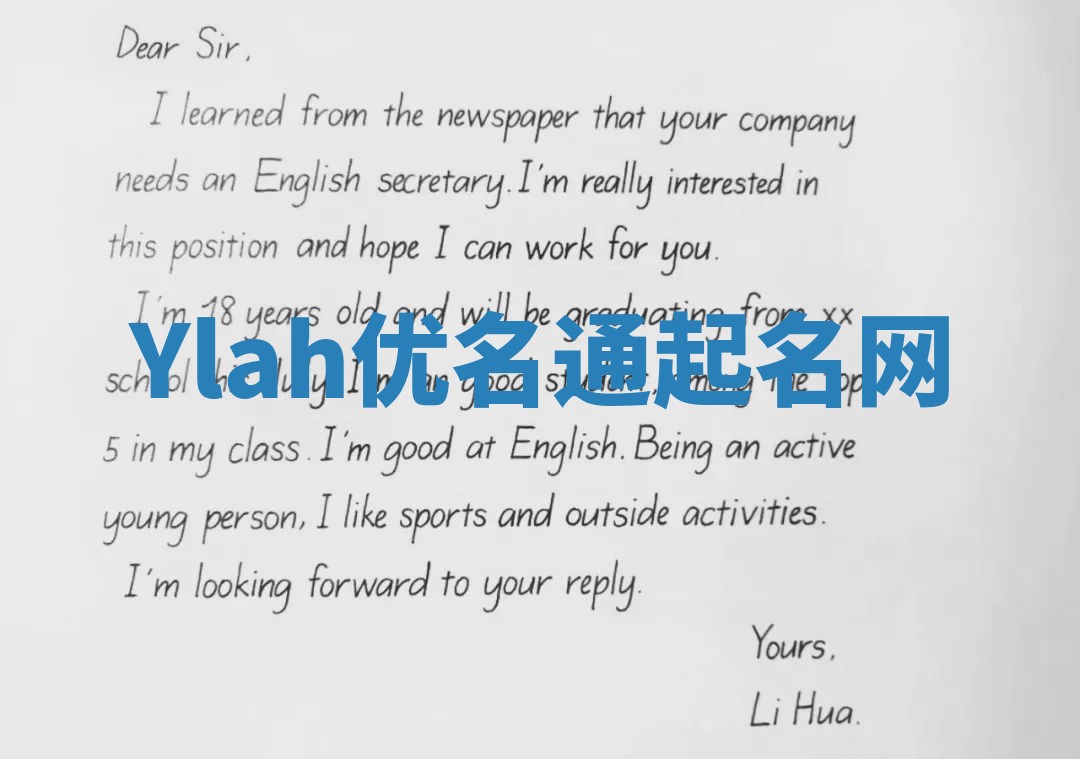 Dear Sir,
I learned from the newspaper that your company
needs an English secretary. I'm really interested in
this position and hope I can work for you.
I'm 18 years old and will be graduating from xx
Ylah优名通起名网
school July I'm an good student, among the top
5 in my class. I'm good at English. Being an active
young person, I like sports and outside activities.
I'm looking forward to your reply.
Yours,
Li Hua.